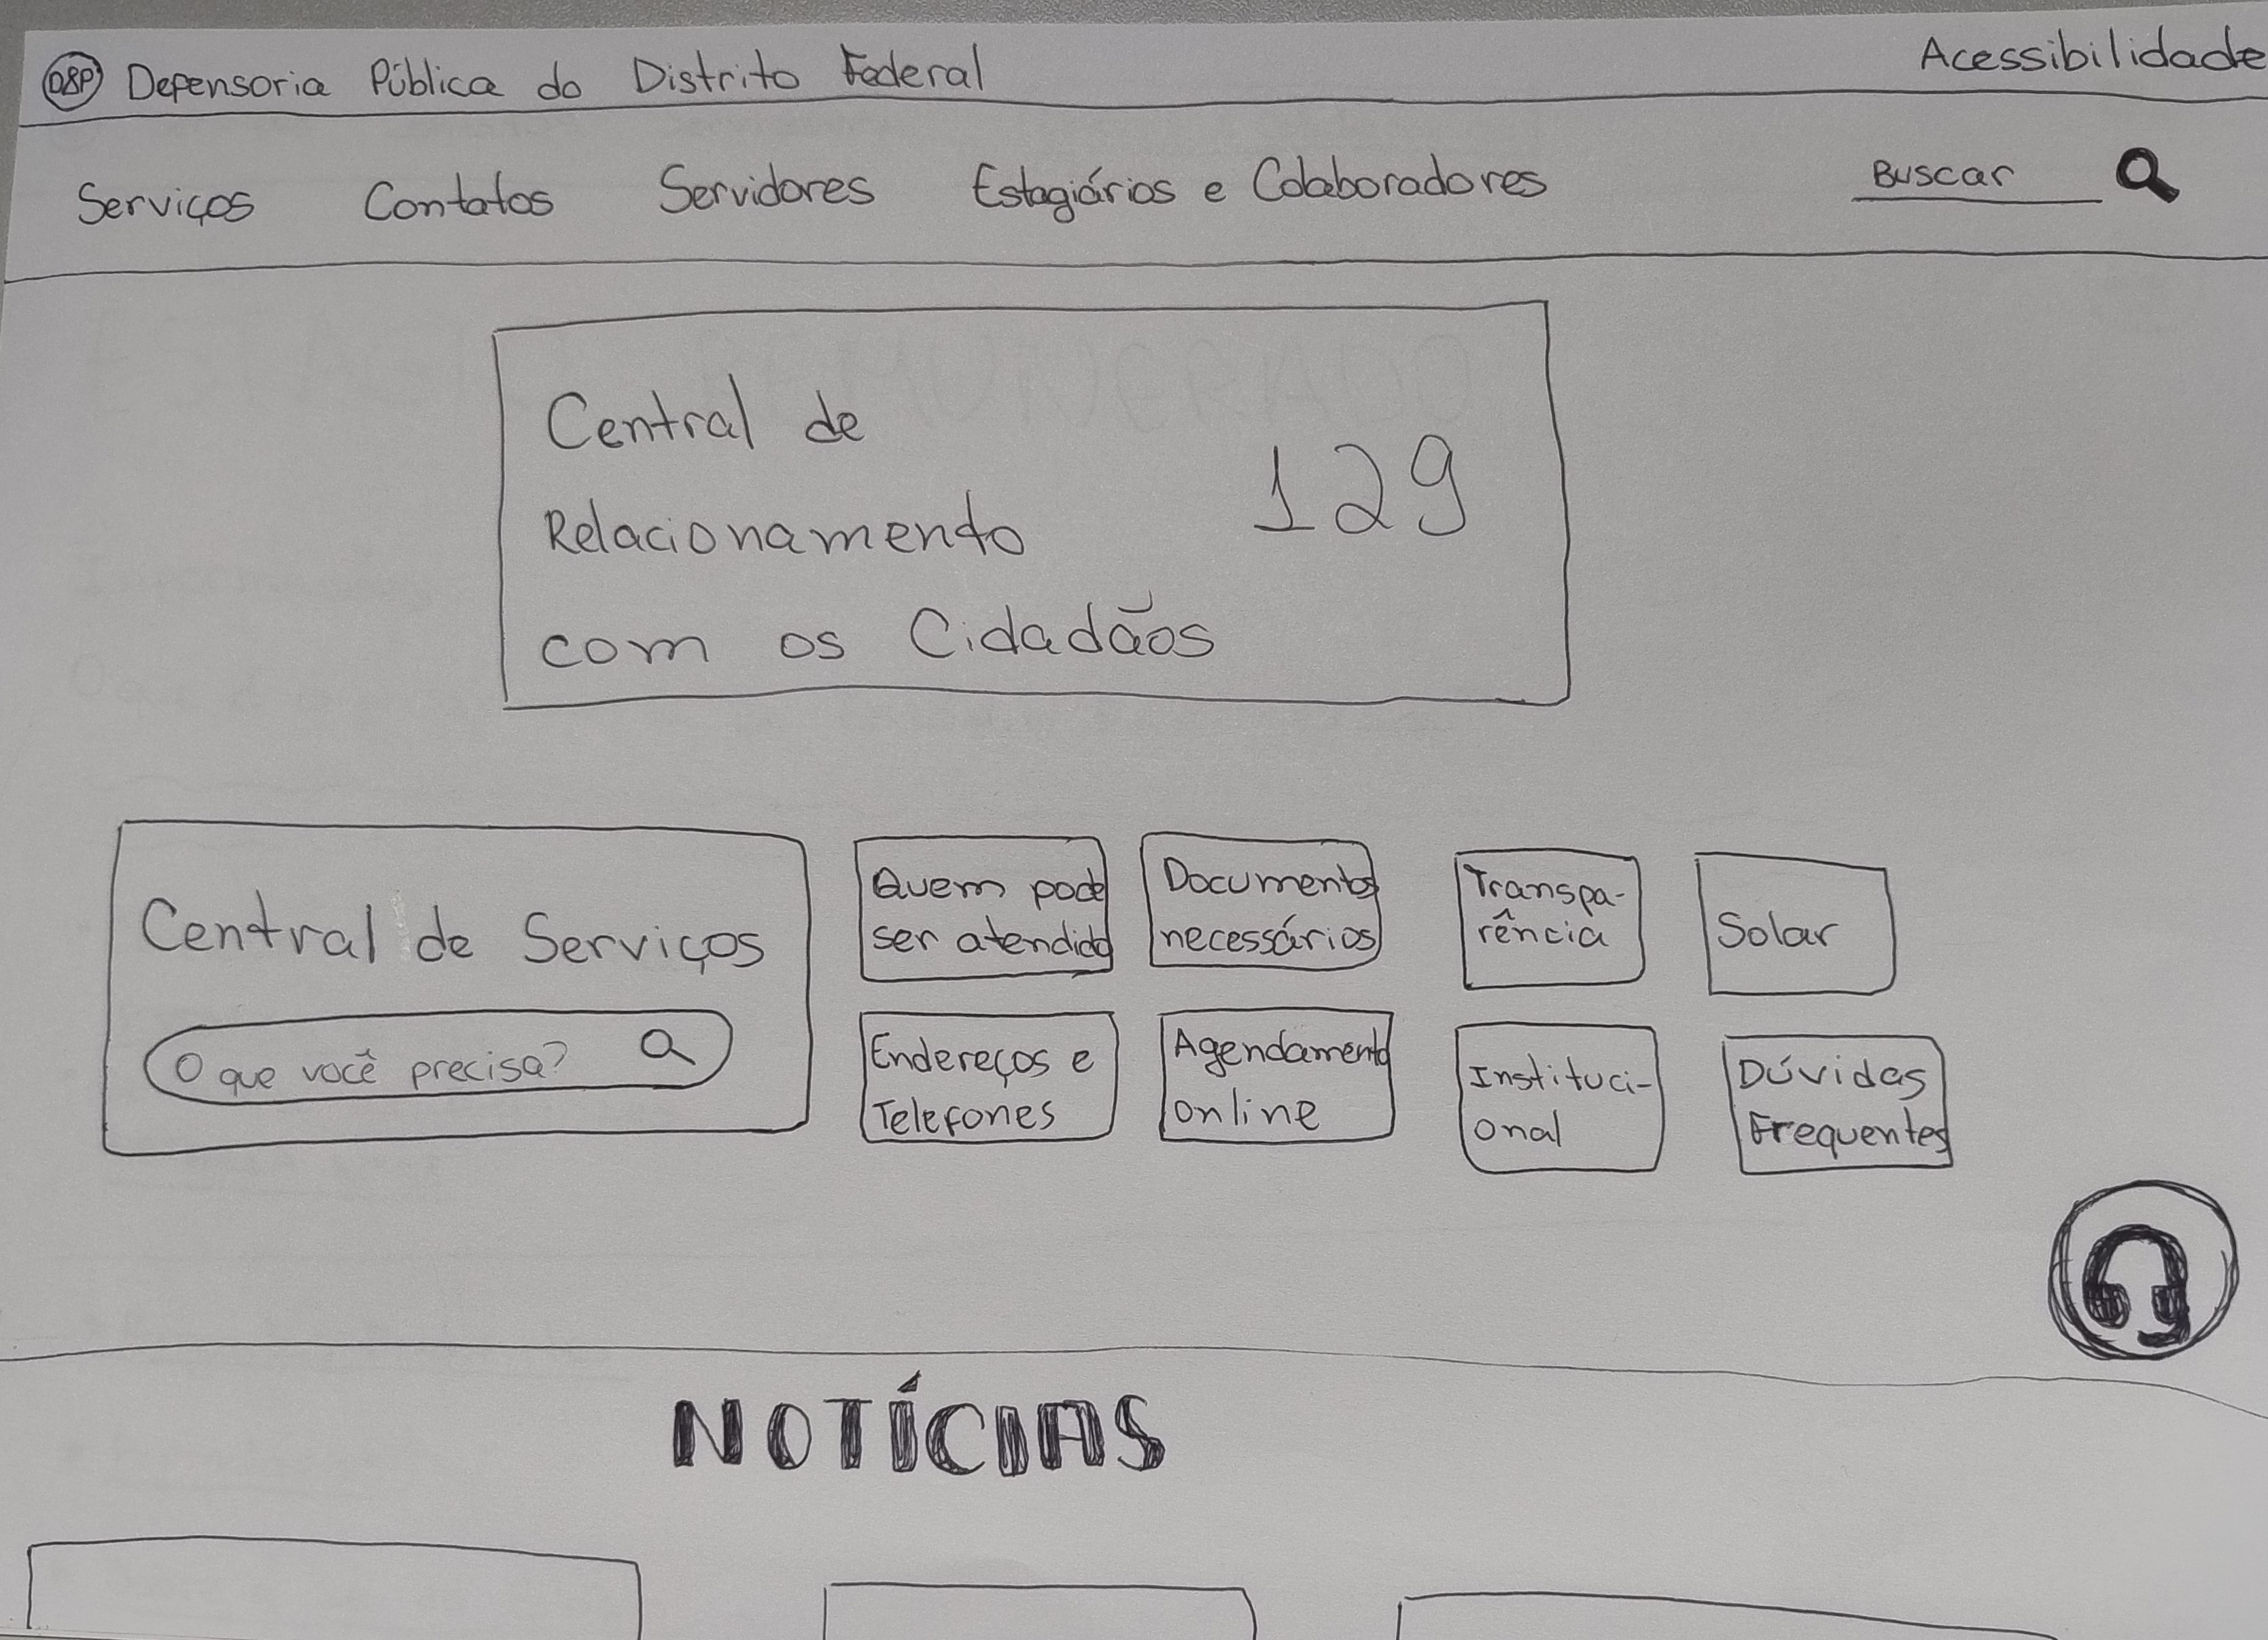 Defensoria Pública do Distrito Federal
Acessibilidade
Serviços Contatos Servidores Estagiários e Colaboradores Buscar
Central de
Relacionamento
com os Cidadãos
129
Central de Serviços
O que você precisa?
Quem pode
ser atendido
Documentos
necessários
Transpa-
rência
Solar
Endereços e
Telefones
Agendamento
online
Instituci-
onal
Dúvidas
Frequentes
NOTÍCIAS